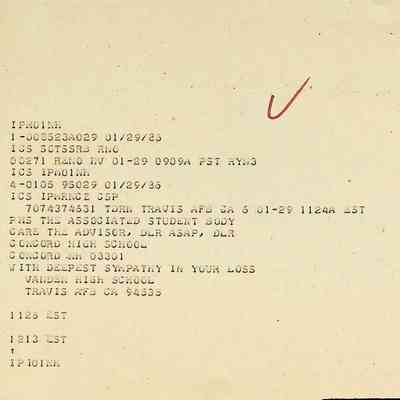 IPM01NH
1-008523A029 01/29/86
ICS SCTSSRB RNO
00271 RENO NV 01-29 0909A PST RYN3
ICS IPM01NH
4-0105 95029 01/29/86
ICS IPMRNCZ CSP
7074374631 TDRN TRAVIS AFB CA 6 01-29 1124A EST
PMS THE ASSOCIATED STUDENT BODY
CARE THE ADVISOR, DLR ASAP, DLR
CONCORD HIGH SCHOOL
CONCORD NH 03301
WITH DEEPEST SYMPATHY IN YOUR LOSS
VANDEN HIGH SCHOOL
TRAVIS AFB CA 94535
1128 EST
1213 EST
IPM01NH